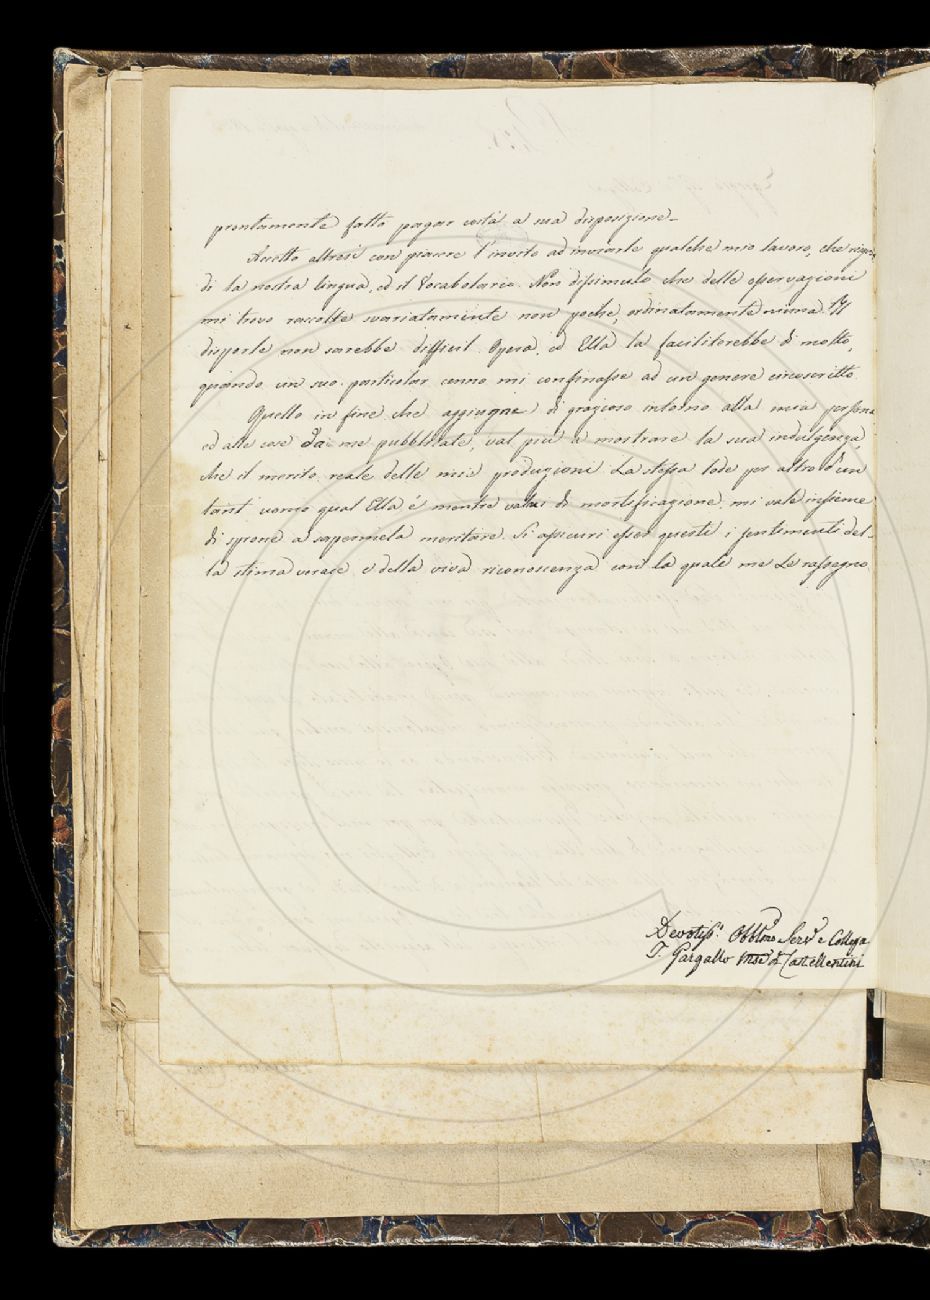 prontamente fatto pagar costà a sua disposizione.
Accetto altresì con piacere l'invito ad inviarle qualche mio lavoro, che
di la nostra lingua, ed il Vocabolario. Non dissimulo che delle osservazioni
mi trovo raccolte svariatamente non poche, ordinatamente niuna. Il
disporle non sarebbe difficil Opera, ed Ella la faciliterebbe di molto,
quando un suo particolar cenno mi confinasse ad un genere circoscritto.
Quello in fine che aggiugne di grazioso intorno alla mia persona
ed alle cose da me pubblicate, val più a mostrare la sua indulgenza,
che il merito reale delle mie produzioni. La stessa lode per altro d'un
tant' uomo qual Ella è mentre valmi di mortificazione, mi vale insieme
di sprone a sapermela meritare. Si assicuri esser questi i sentimenti del-
la stima verace e della viva riconoscenza con la quale me Le rassegno
Devotiss.º Obblmo Serv.e e Collega
T. Gargallo Mse di Castellentini